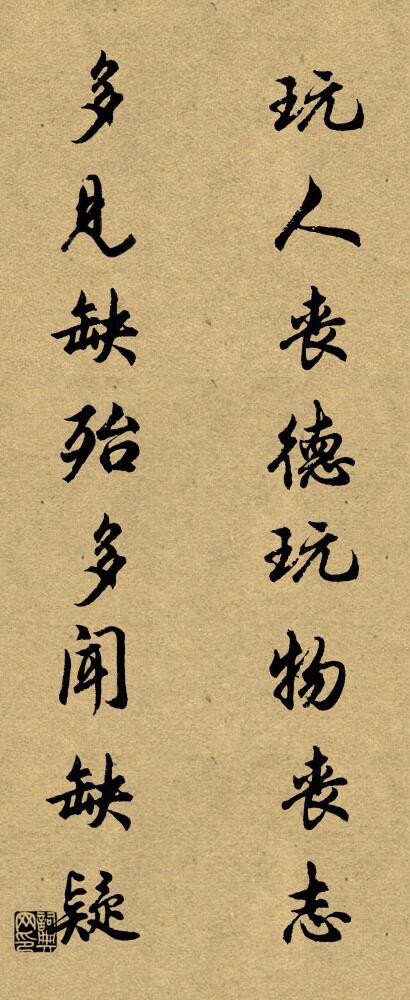 玩人丧德玩物丧志
多见缺殆多闻缺疑